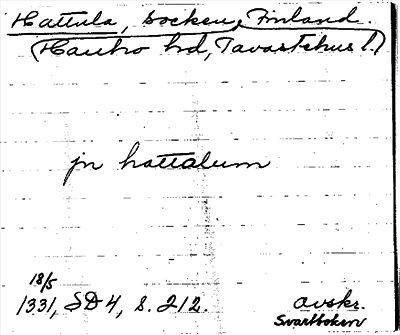 Hattula, socken, Finland.
(Hauho hd, Tavastehus l.)
jn hattalum
18/5
1331, SD 4, s. 212.
avskr.
Svartboken